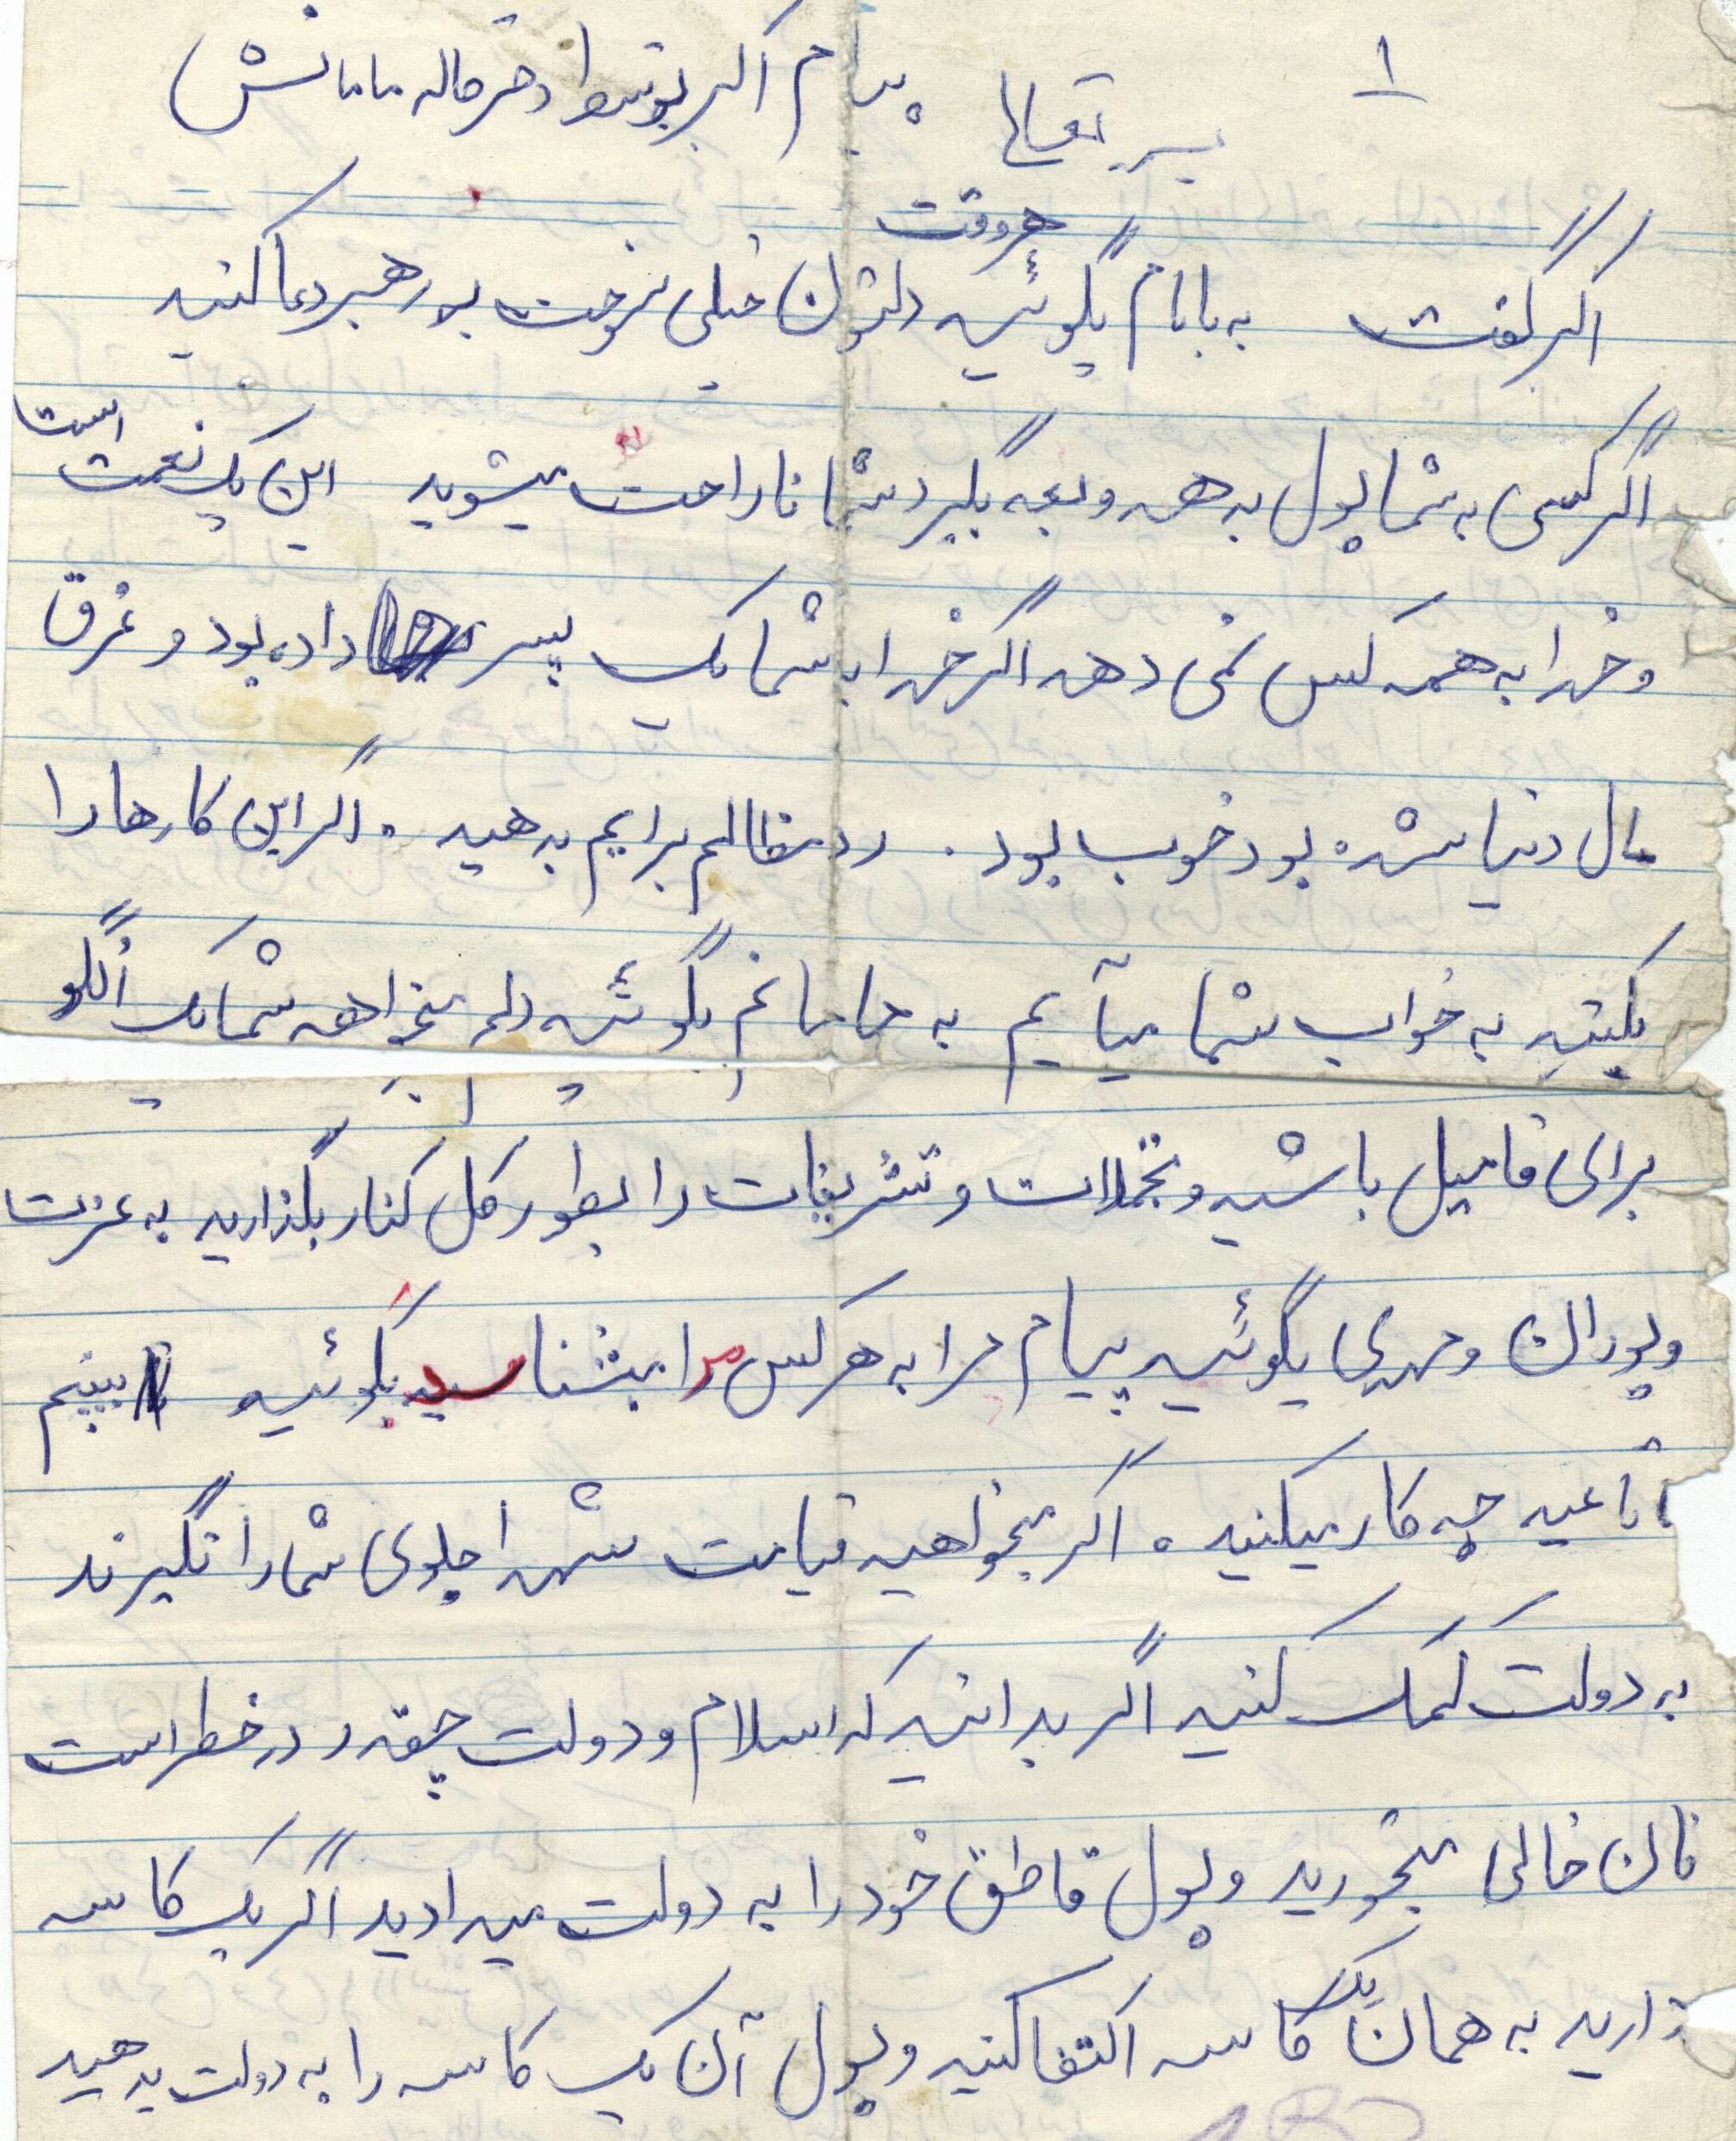 ۱
بسمه تعالی پیام اکبر بتوسط دختر خاله مامانش
هروقت
اکبر گفت به بابام بگوئید دلتون خیلی سوخت به رهبر دعا کنید
است
اگر کسی به شما پول بدهد و بعد بگیرد شما ناراحت میشوید این یک نعمت
و خدا به همه کس نمی دهد اگر خدا به شما یک پسر داده بود و غرق
مال دنیا شده بود خوب بود . رد مظالم برایم بدهید . اگر این کارها را
بکنید به خواب شما میآیم به مامانم بگوئید دلم میخواهد شما یک الگو
برای فامیل باشید و تجملات و تشریفات را بطور کل کنار بگذارید به عزت
و پوران و مهری بگوئید پیام مرا به هر کس مرا میشناسید بگوئید ببینم
تا عید چه کار میکنید . اگر میخواهید قیامت شهدا جلوی شما را نگیرند
به دولت کمک کنید اگر بدانید که اسلام و دولت چقدر در خطر است
نان خالی میخورید و پول قاطق خود را به دولت میدادید اگر یک کاسه
دارید به همان یک کاسه اکتفا کنید و پول آن یک کاسه را به دولت بدهید